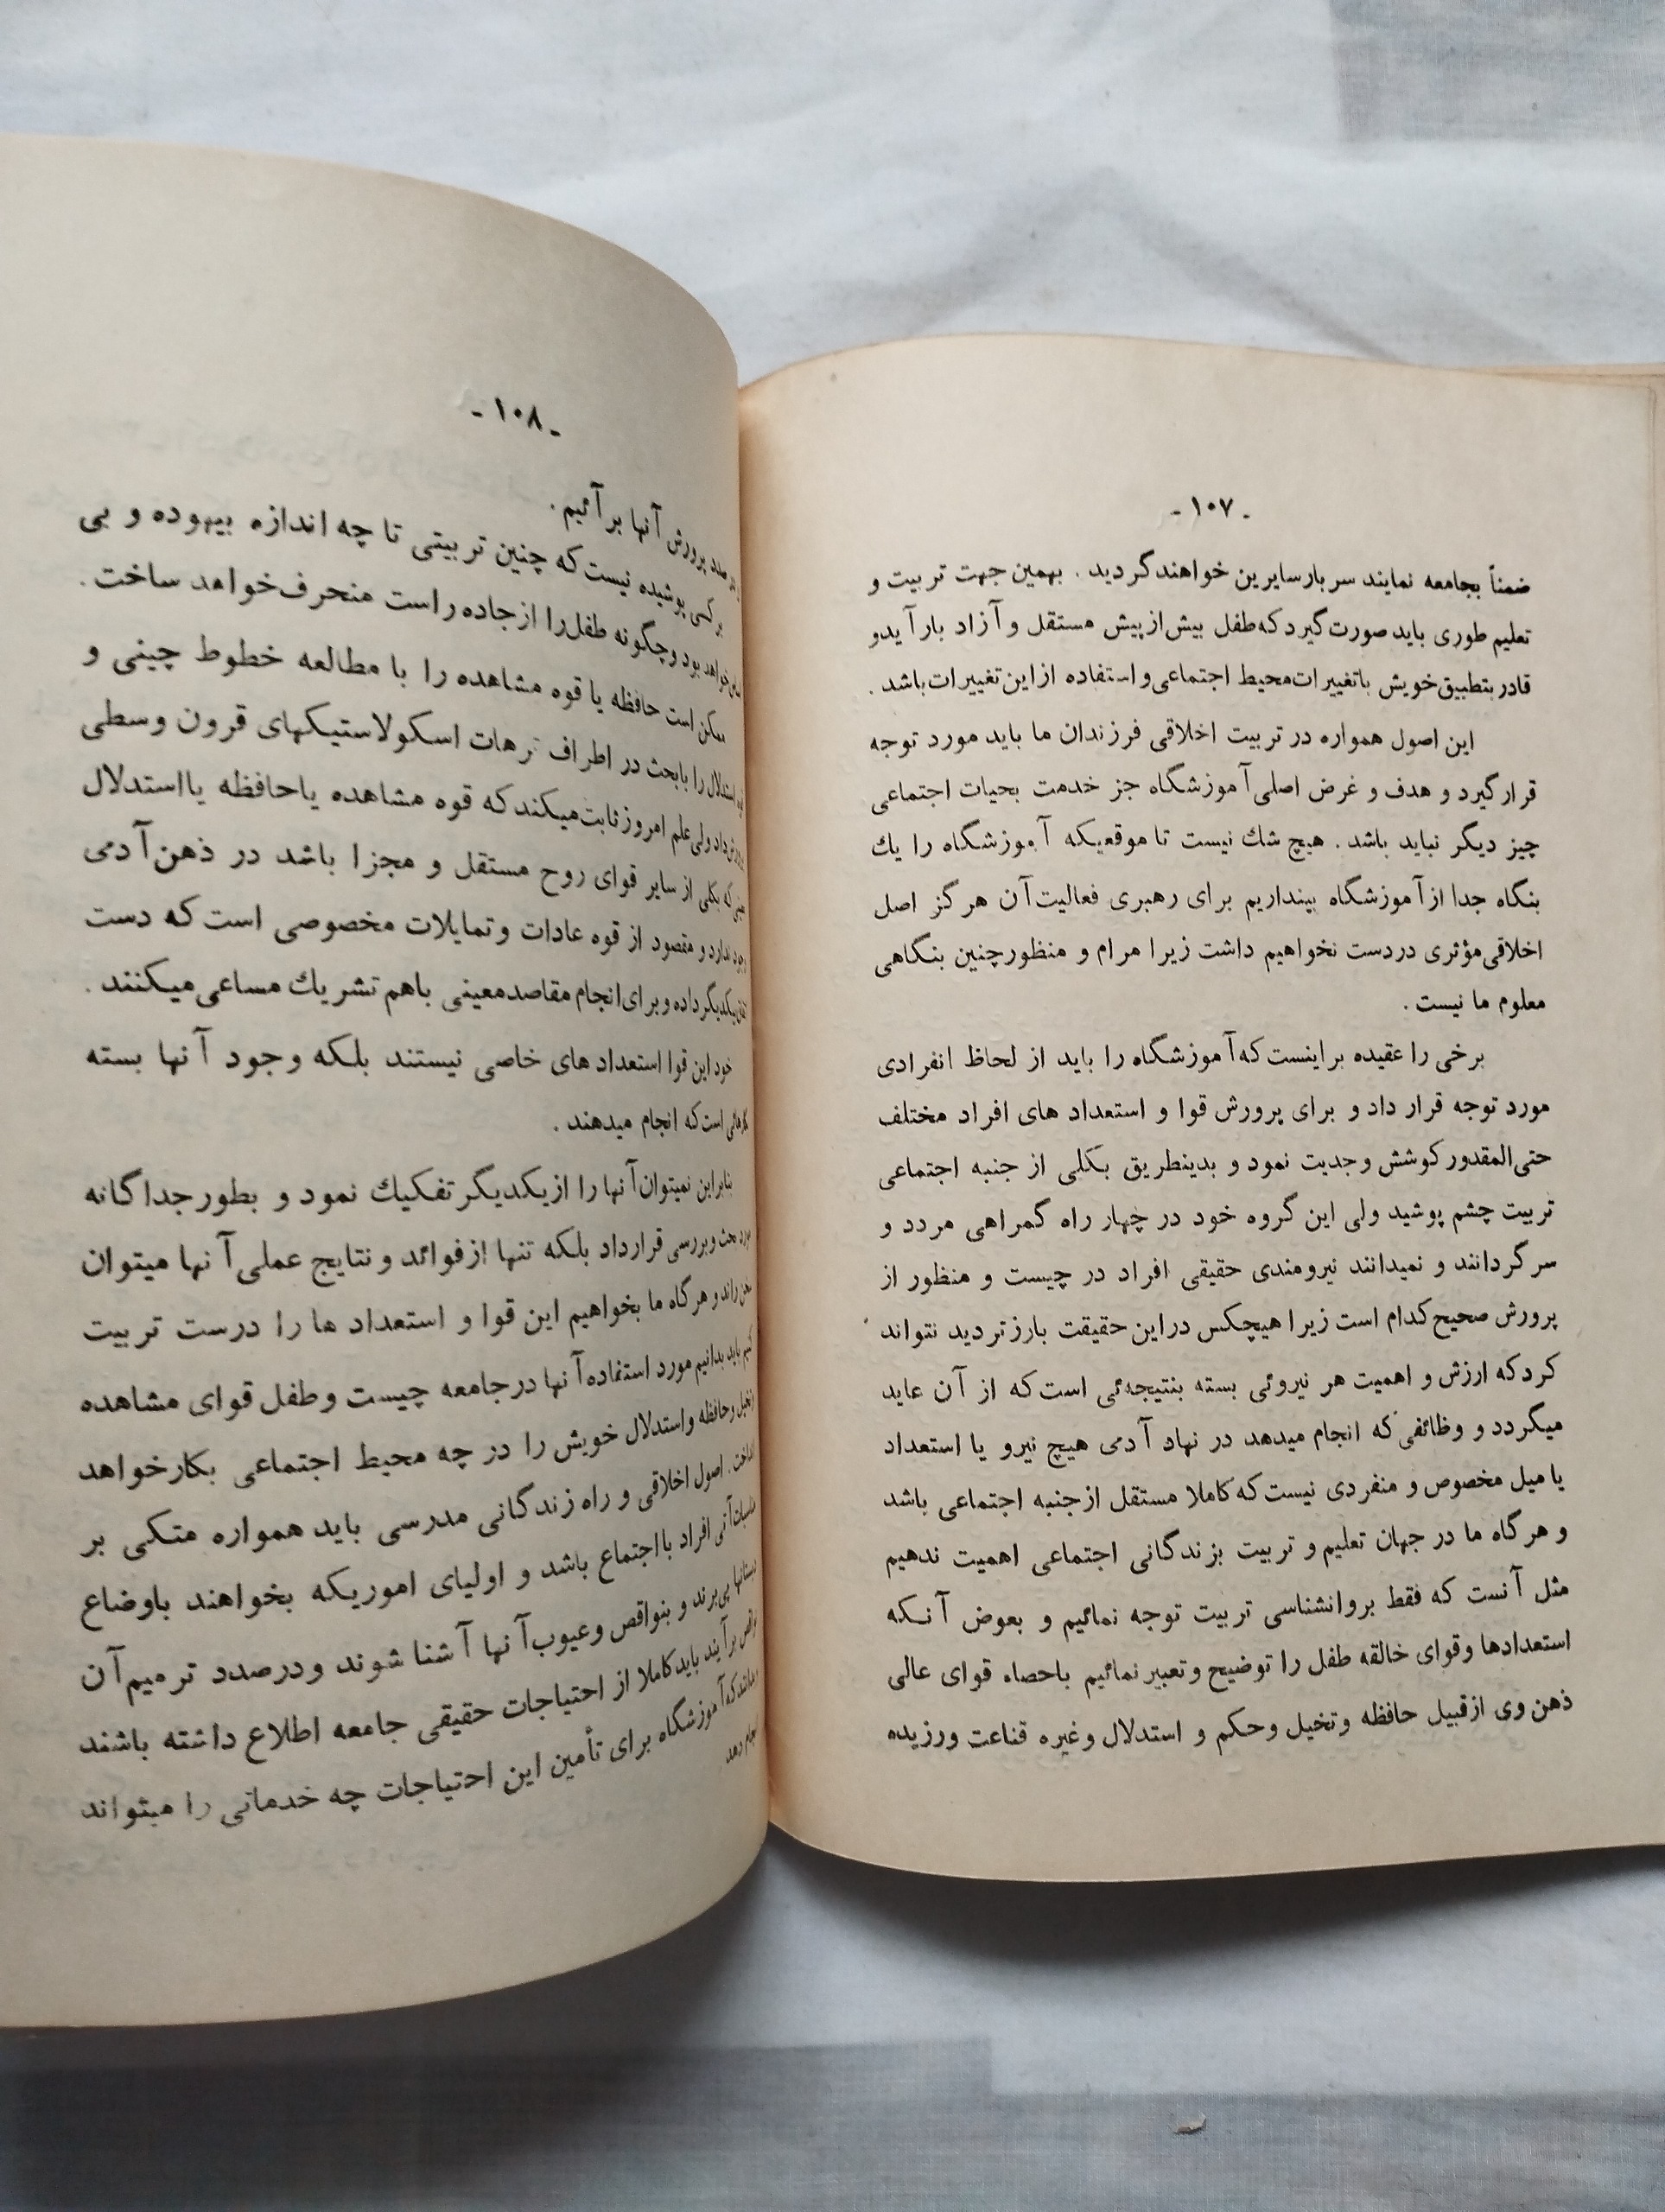 - ۱۰۷ -
ضمناً بجامعه نمایند سربار سایرین خواهند گردید . بهمین جهت تربیت و
تعلیم طوری باید صورت گیرد که طفل بیش از پیش مستقل و آزاد بار آید و
قادر بتطبیق خویش با تغییرات محیط اجتماعی و استفاده از این تغییرات باشد .
این اصول همواره در تربیت اخلاقی فرزندان ما باید مورد توجه
قرار گیرد و هدف و غرض اصلی آموزشگاه جز خدمت بحیات اجتماعی
چیز دیگر نباید باشد . هیچ شك نیست تا موقعیکه آموزشگاه را یك
بنگاه جدا از آموزشگاه بپنداریم برای رهبری فعالیت آن هرگز اصل
اخلاقی مؤثری در دست نخواهیم داشت زیرا مرام و منظور چنین بنگاهی
معلوم ما نیست .
برخی را عقیده بر اینست که آموزشگاه را باید از لحاظ انفرادی
مورد توجه قرار داد و برای پرورش قوا و استعداد های افراد مختلف
حتی‌المقدور کوشش وجدیت نمود و بدینطریق بکلی از جنبه اجتماعی
تربیت چشم پوشید ولی این گروه خود در چهار راه گمراهی مردد و
سرگردانند و نمیدانند نیرومندی حقیقی افراد در چیست و منظور از
پرورش صحیح کدام است زیرا هیچکس در این حقیقت بارز تردید نتواند
کرد که ارزش و اهمیت هر نیروئی بسته بنتیجه‌ئی است که از آن عاید
میگردد و وظائفی که انجام میدهد در نهاد آدمی هیچ نیرو یا استعداد
یا میل مخصوص و منفردی نیست که کاملا مستقل از جنبه اجتماعی باشد
و هر گاه ما در جهان تعلیم و تربیت بزندگانی اجتماعی اهمیت ندهیم
مثل آنست که فقط بروانشناسی تربیت توجه نمائیم و بعوض آنکه
استعدادها وقوای خالقه طفل را توضیح و تعبیر نمائیم باحصاء قوای عالی
ذهن وی از قبیل حافظه وتخیل وحکم و استدلال وغیره قناعت ورزیده
- ۱۰۸ -
در صدد پرورش آنها برآئیم .
بر کسی پوشیده نیست که چنین تربیتی تا چه اندازه بیهوده و بی
خواهد بود وچگونه طفل را از جاده راست منحرف خواهد ساخت .
ممکن است حافظه یا قوه مشاهده را با مطالعه خطوط چینی و
استدلال را بابحث در اطراف ترهات اسکولاستیکهای قرون وسطی
داد ولی علم امروز ثابت میکند که قوه مشاهده یاحافظه یا استدلال
که بکلی از سایر قوای روح مستقل و مجزا باشد در ذهن آدمی
وجود ندارد و مقصود از قوه عادات وتمایلات مخصوصی است که دست
بیکدیگر داده وبرای انجام مقاصد معینی باهم تشریك مساعی میکنند .
خود این قوا استعداد های خاصی نیستند بلکه وجود آنها بسته
است که انجام میدهند .
بنابراین نمیتوان آنها را از یکدیگر تفکیك نمود و بطور جداگانه
مورد بحث وبررسی قرار داد بلکه تنها از فوائد و نتایج عملی آنها میتوان
سخن راند و هر گاه ما بخواهیم این قوا و استعداد ها را درست تربیت
کنیم باید بدانیم مورد استفاده آنها در جامعه چیست و طفل قوای مشاهده
وحافظه واستدلال خویش را در چه محیط اجتماعی بکار خواهد
انداخت . اصول اخلاقی و راه زندگانی مدرسی باید همواره متکی بر
افراد با اجتماع باشد و اولیای اموریکه بخواهند باوضاع
پی برند و بنواقص وعیوب آنها آشنا شوند و درصدد ترمیم آن
برآیند باید کاملا از احتیاجات حقیقی جامعه اطلاع داشته باشند
آموزشگاه برای تأمین این احتیاجات چه خدماتی را میتواند
انجام دهد